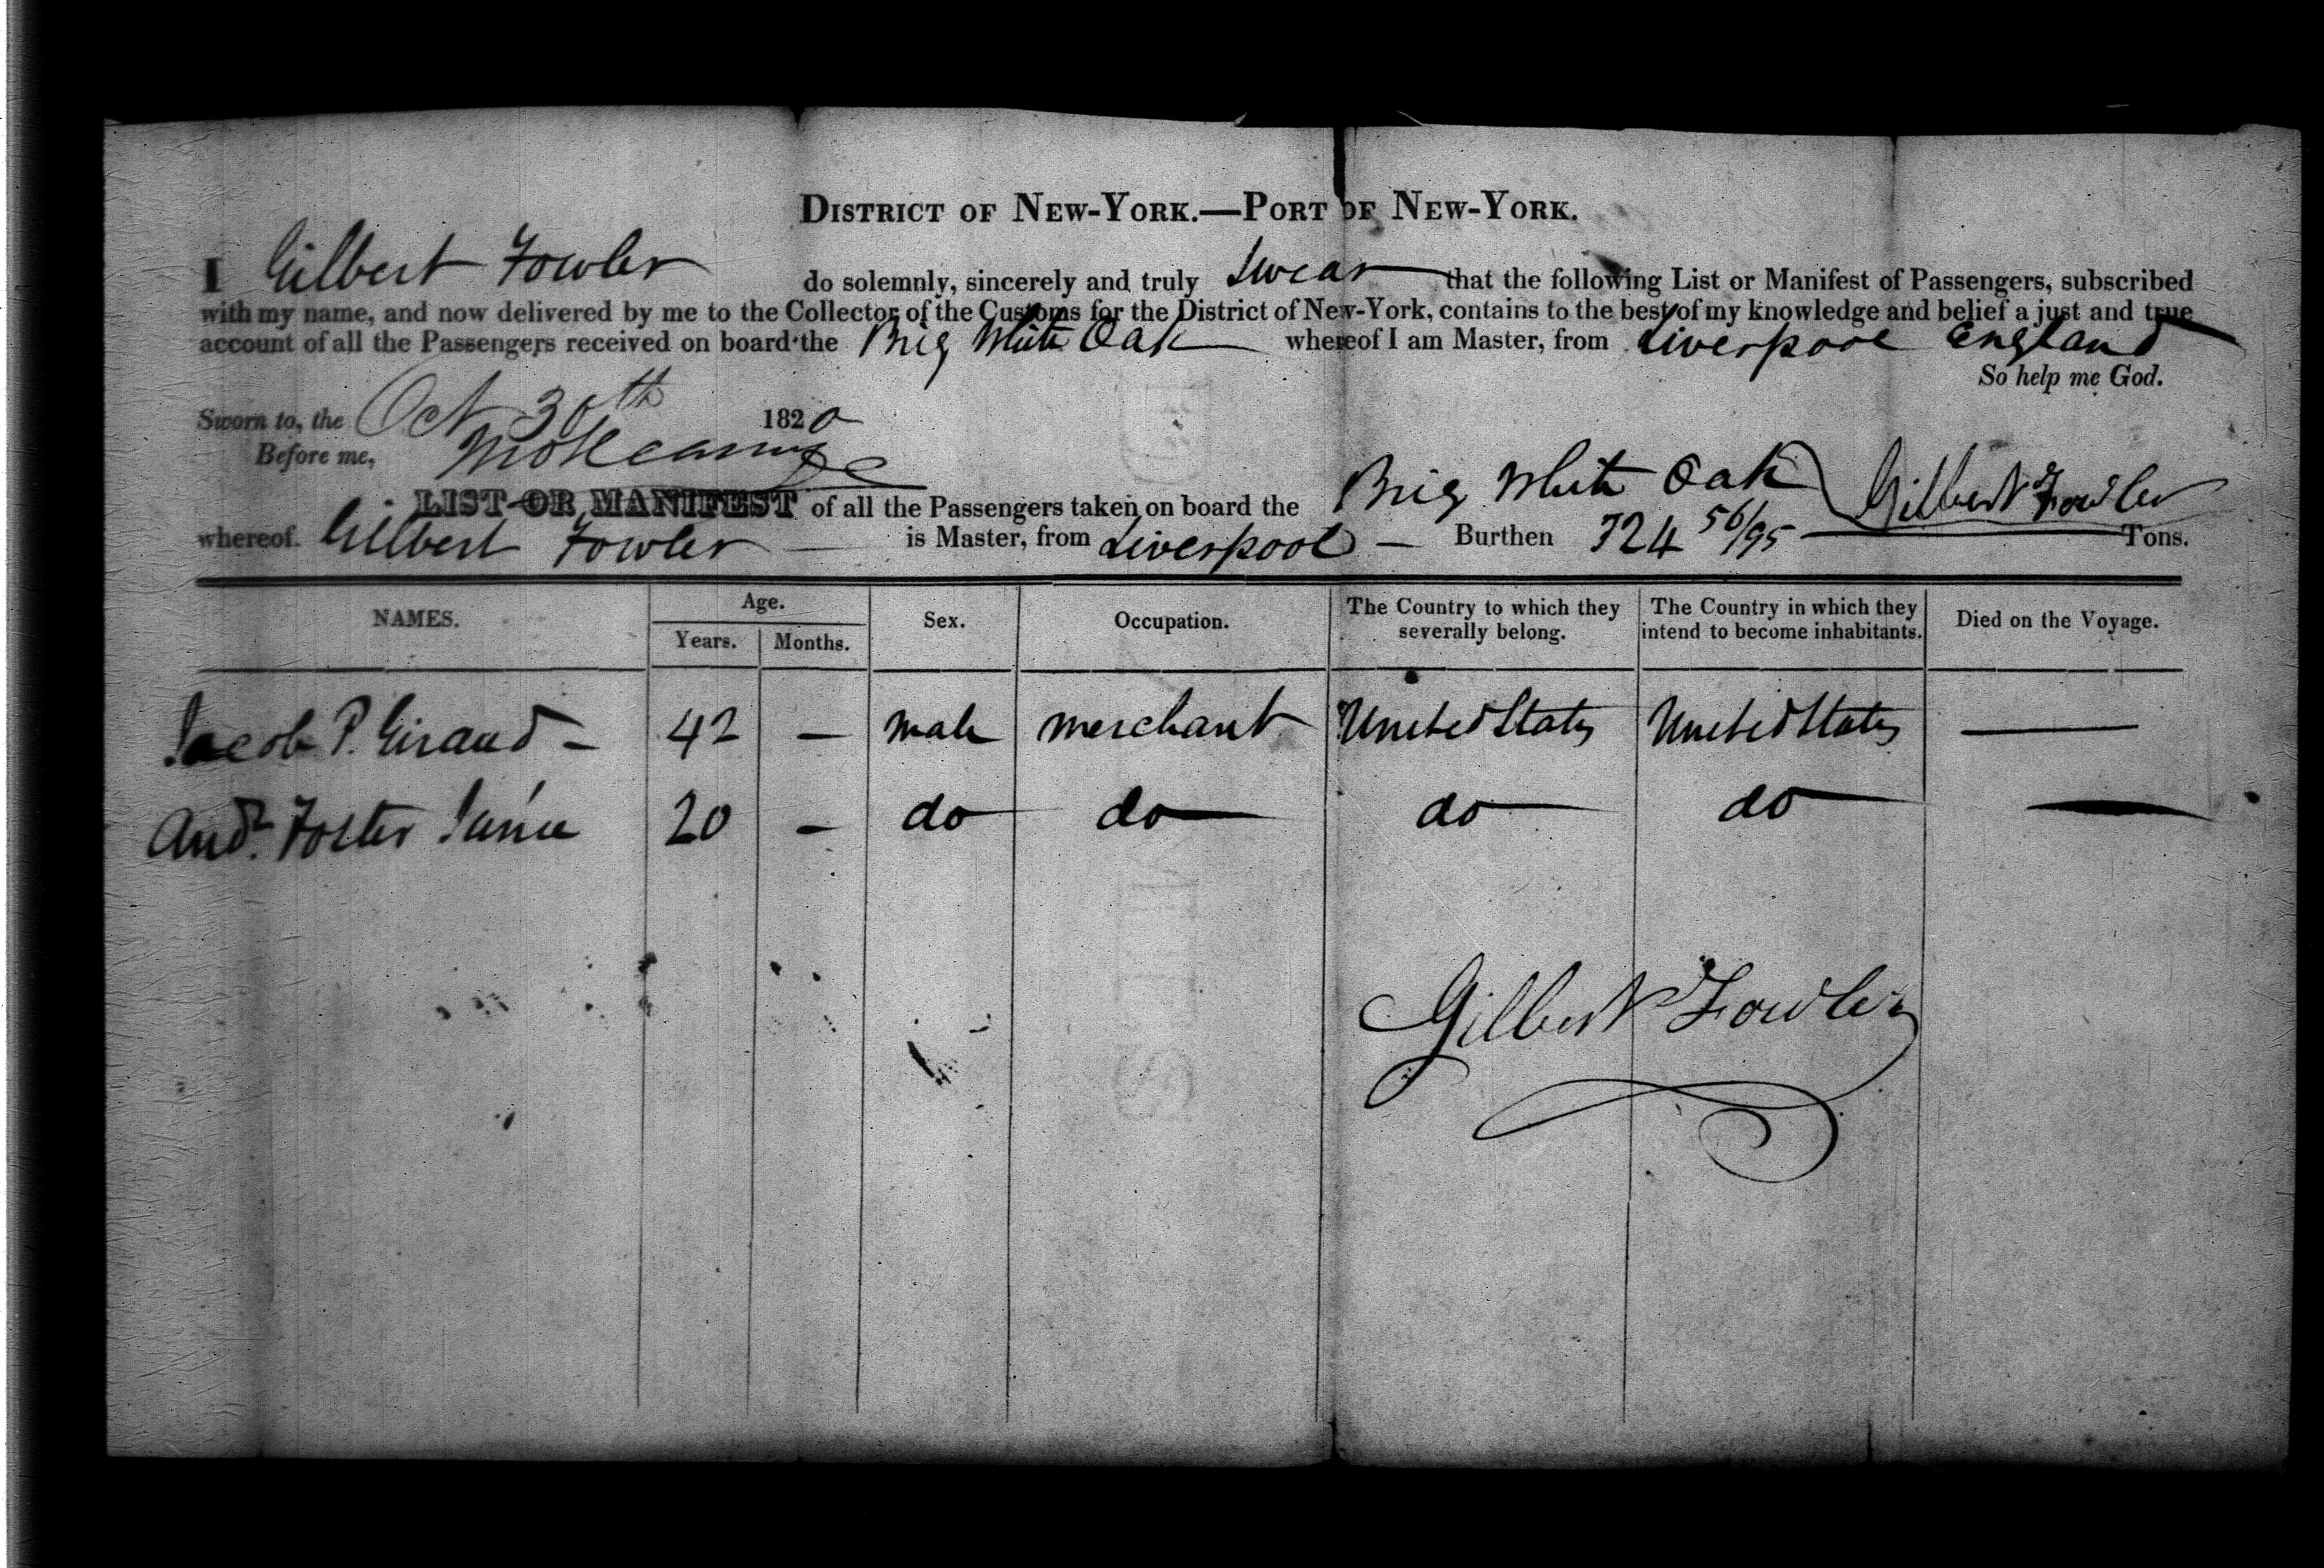 DISTRICT OF NEW-YORK.—PORT OF NEW-YORK.
I Gilbert Fowler do solemnly, sincerely and truly swear that the following List or Manifest of Passengers, subscribed
with my name, and now delivered by me to the Collector of the Customs for the District of New-York, contains to the best of my knowledge and belief a just and true
account of all the Passengers received on board the Brig White Oak whereof I am Master, from Liverpool England
So help me God.
Sworn to, the Oct 30th 1820
Before me,
Gilbert Fowler
LIST OR MANIFEST of all the Passengers taken on board the Brig White Oak
whereof Gilbert Fowler — is Master, from Liverpool — Burthen 324 56/95 Tons.
NAMES. Age. Years. Months. Sex. Occupation. The Country to which they severally belong. The Country in which they intend to become inhabitants. Died on the Voyage.
Jacob P. Giraud – 42 — male merchant United States United States —
Andw. Foster 20 — do do do do —
Gilbert Fowler